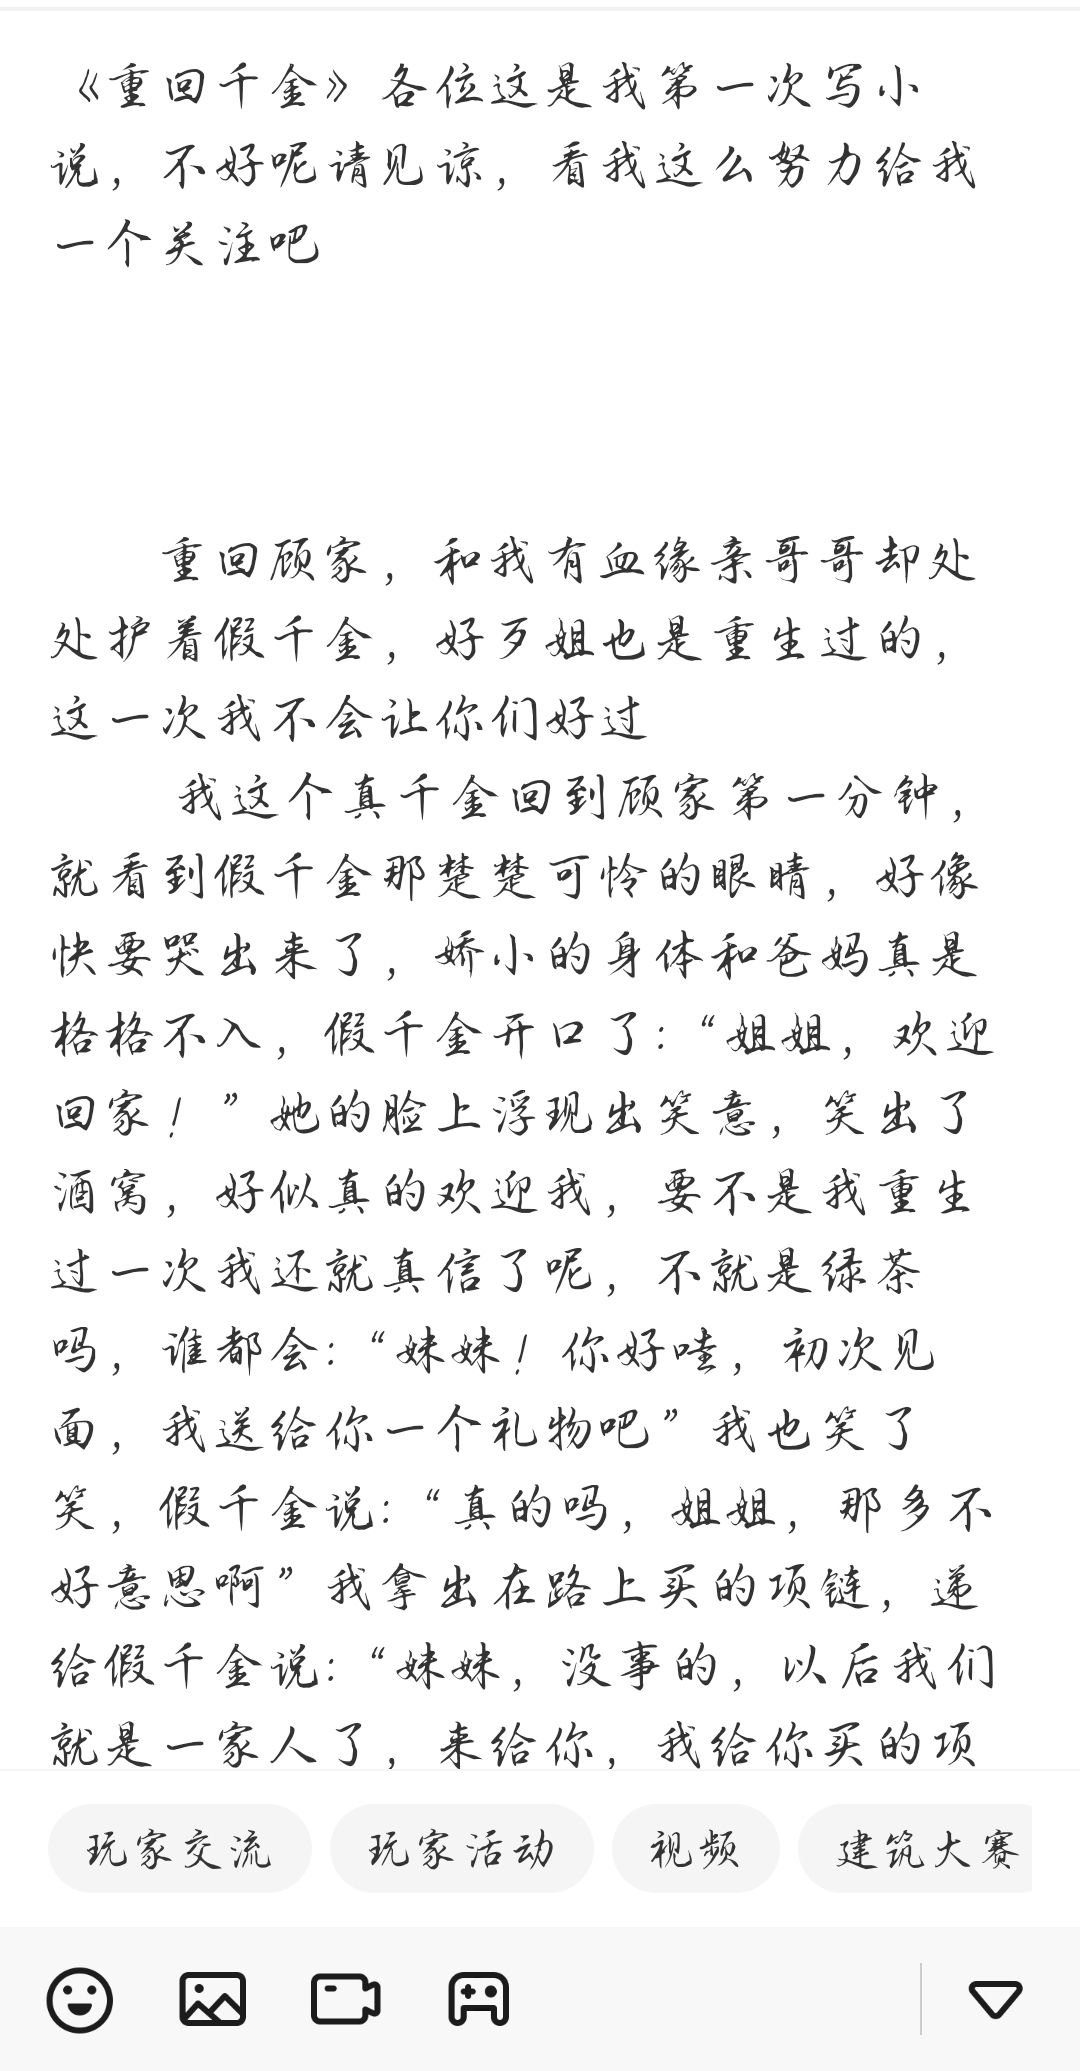 《重回千金》各位这是我第一次写小
说，不好呢请见谅，看我这么努力给我
一个关注吧
重回顾家，和我有血缘亲哥哥却处
处护着假千金，好歹姐也是重生过的，
这一次我不会让你们好过
我这个真千金回到顾家第一分钟，
就看到假千金那楚楚可怜的眼睛，好像
快要哭出来了，娇小的身体和爸妈真是
格格不入，假千金开口了:“姐姐，欢迎
回家！”她的脸上浮现出笑意，笑出了
酒窝，好似真的欢迎我，要不是我重生
过一次我还就真信了呢，不就是绿茶
吗，谁都会:“妹妹！你好哇，初次见
面，我送给你一个礼物吧”我也笑了
笑，假千金说:“真的吗，姐姐，那多不
好意思啊”我拿出在路上买的项链，递
给假千金说:“妹妹，没事的，以后我们
就是一家人了，来给你，我给你买的项
玩家交流 玩家活动 视频 建筑大赛